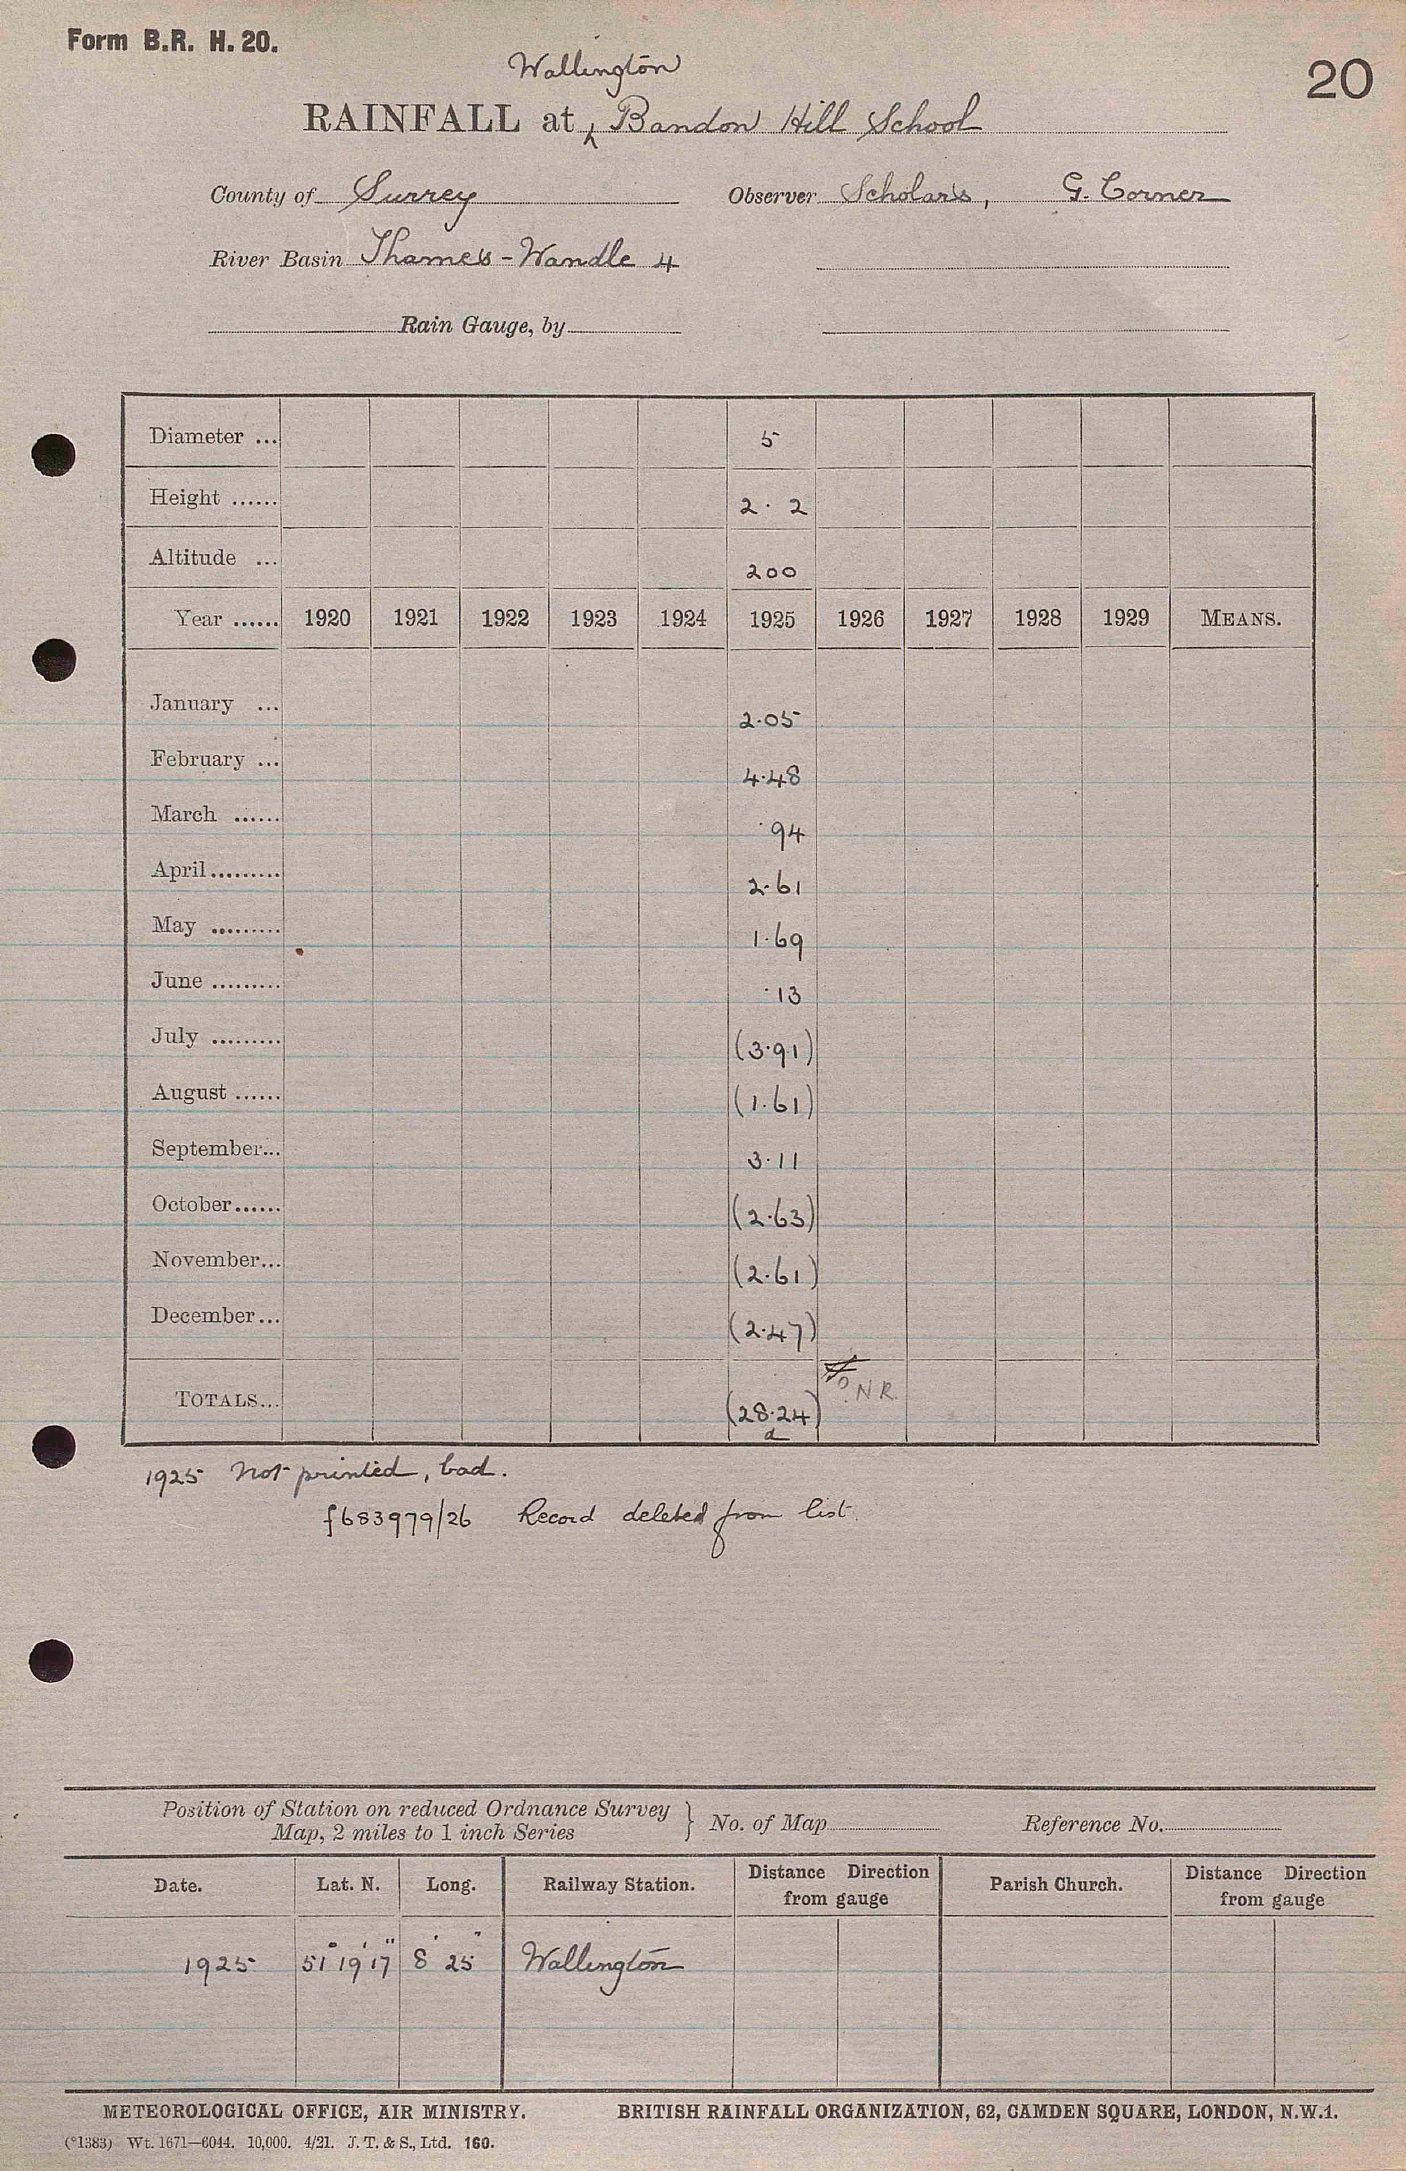 Form B.R. H. 20.
20
Wallington
RAINFALL at Bandon Hill School
County of Surrey Observer Scholars, G. Corner
River Basin Thames - Wandle 4
Rain Gauge, by
Diameter ... 5
Height ...... 2. 2
Altitude ... 200
Year ...... 1920 1921 1922 1923 1924 1925 1926 1927 1928 1929 MEANS.
January ... 2.05
February ... 4.48
March ...... .94
April......... 2.61
May ......... 1.69
June ......... .13
July ......... (3.91)
August ...... (1.61)
September... 3.11
October...... (2.63)
November... (2.61)
December... (2.47)
TOTALS... (28.24) N R.
d
1925 Not printed, bad.
f683979/26 Record deleted from list.
Position of Station on reduced Ordnance Survey
Map, 2 miles to 1 inch Series } No. of Map Reference No.
Date. Lat. N. Long. Railway Station. Distance Direction from gauge Parish Church. Distance Direction from gauge
1925 51° 19' 17" 8' 25" Wallington
METEOROLOGICAL OFFICE, AIR MINISTRY. BRITISH RAINFALL ORGANIZATION, 62, CAMDEN SQUARE, LONDON, N.W.1.
(*1383) Wt. 1671—6044. 10,000. 4/21. J. T. & S., Ltd. 160.